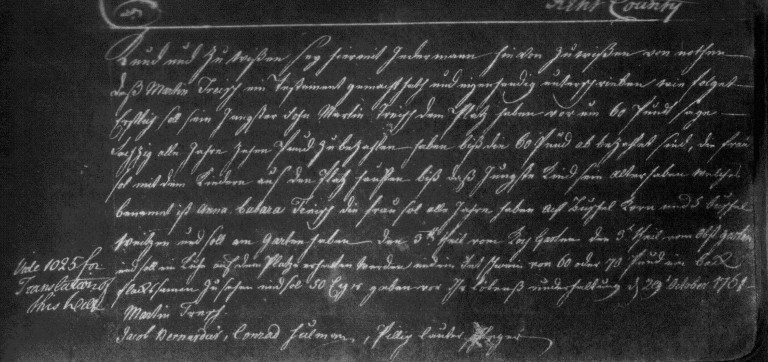 Kent County
Kund und zu wißen sey hiermit Jedermann von nothen
daß Martin Treisch ein Testament gemacht hatt und eigenhendig unterschrieben wie folget
Erstlich soll sein Jungster Sohn Martin Treisch dem Platz haben vor um 60 Pfund sage
Sechzig alle Jahre zehen Pfund zu bezahlen haben biß die 60 Pfund ab bezahlt sind, die frau
sol mit dem Kindern auf den Platz haußen biß daß Jungste Kind sein alter haben welches
benamet ist Anna Barbara Treisch die frau sol alle Jahre haben acht Buschel Korn und 5 Buschel
Weitzen und soll am Garten haben den 3th theil vom Garten den 3 theil vom obst Garten
und soll ein Kuhe auf dem Platz erhalten werden und ein Schwein von 60 oder 70 Pfund ein
flachs Samen zu sehen und sol 50 geben vor Ihr Lebens unterhaltung d 29 October 1761
Martin Treisch
Jacob Bernardus, Conrad Hulman, Pillip Lauter,
Vide 1025 for
Translation of
this will